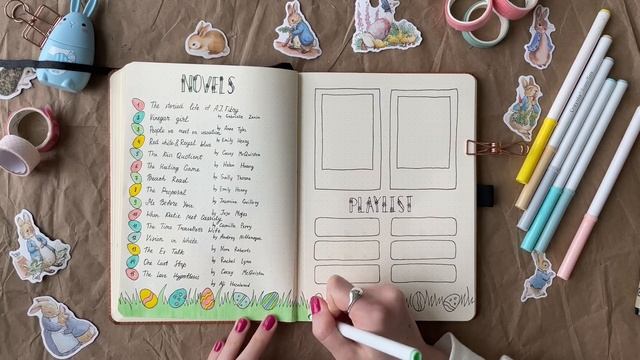 NOVELS
The storied life of A.J. Fikry
by Gabrielle Zevin
Vinegar girl
by Anne Tyler
People we meet on vacation
by Emily Henry
Red white & Royal blue
by Casey McQuiston
The Kiss Quotient
by Helen Hoang
The Hating Game
by Sally Thorne
Beach Read
by Emily Henry
The Proposal
by Jasmine Guillory
Me Before You
by Jojo Moyes
When Katie met Cassidy
by Camille Perry
The Time Traveller's Wife
by Audrey Niffenegger
Vision in White
by Nora Roberts
The Ex Talk
by Rachel Lynn
One Last Stop
by Casey McQuiston
The Love Hypothesis
by Ali Hazelwood
PLAYLIST